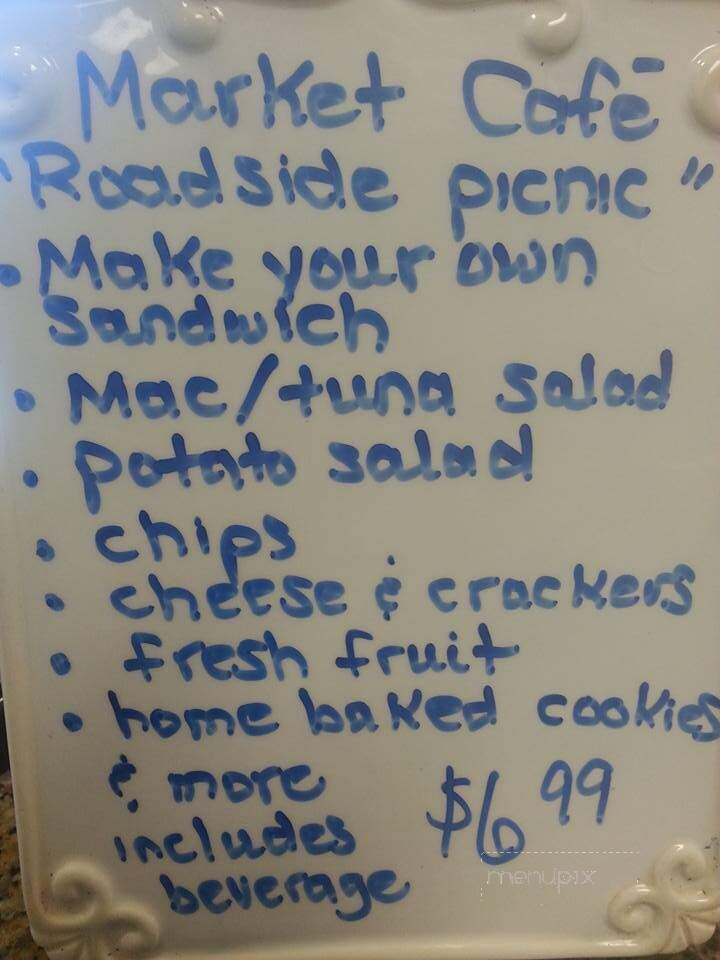 Market Cafē
"Roadside picnic"
• Make your own
sandwich
• Mac/tuna salad
• potato salad
• chips
• cheese & crackers
• fresh fruit
• home baked cookies
& more
includes
beverage
$6 99
menupix